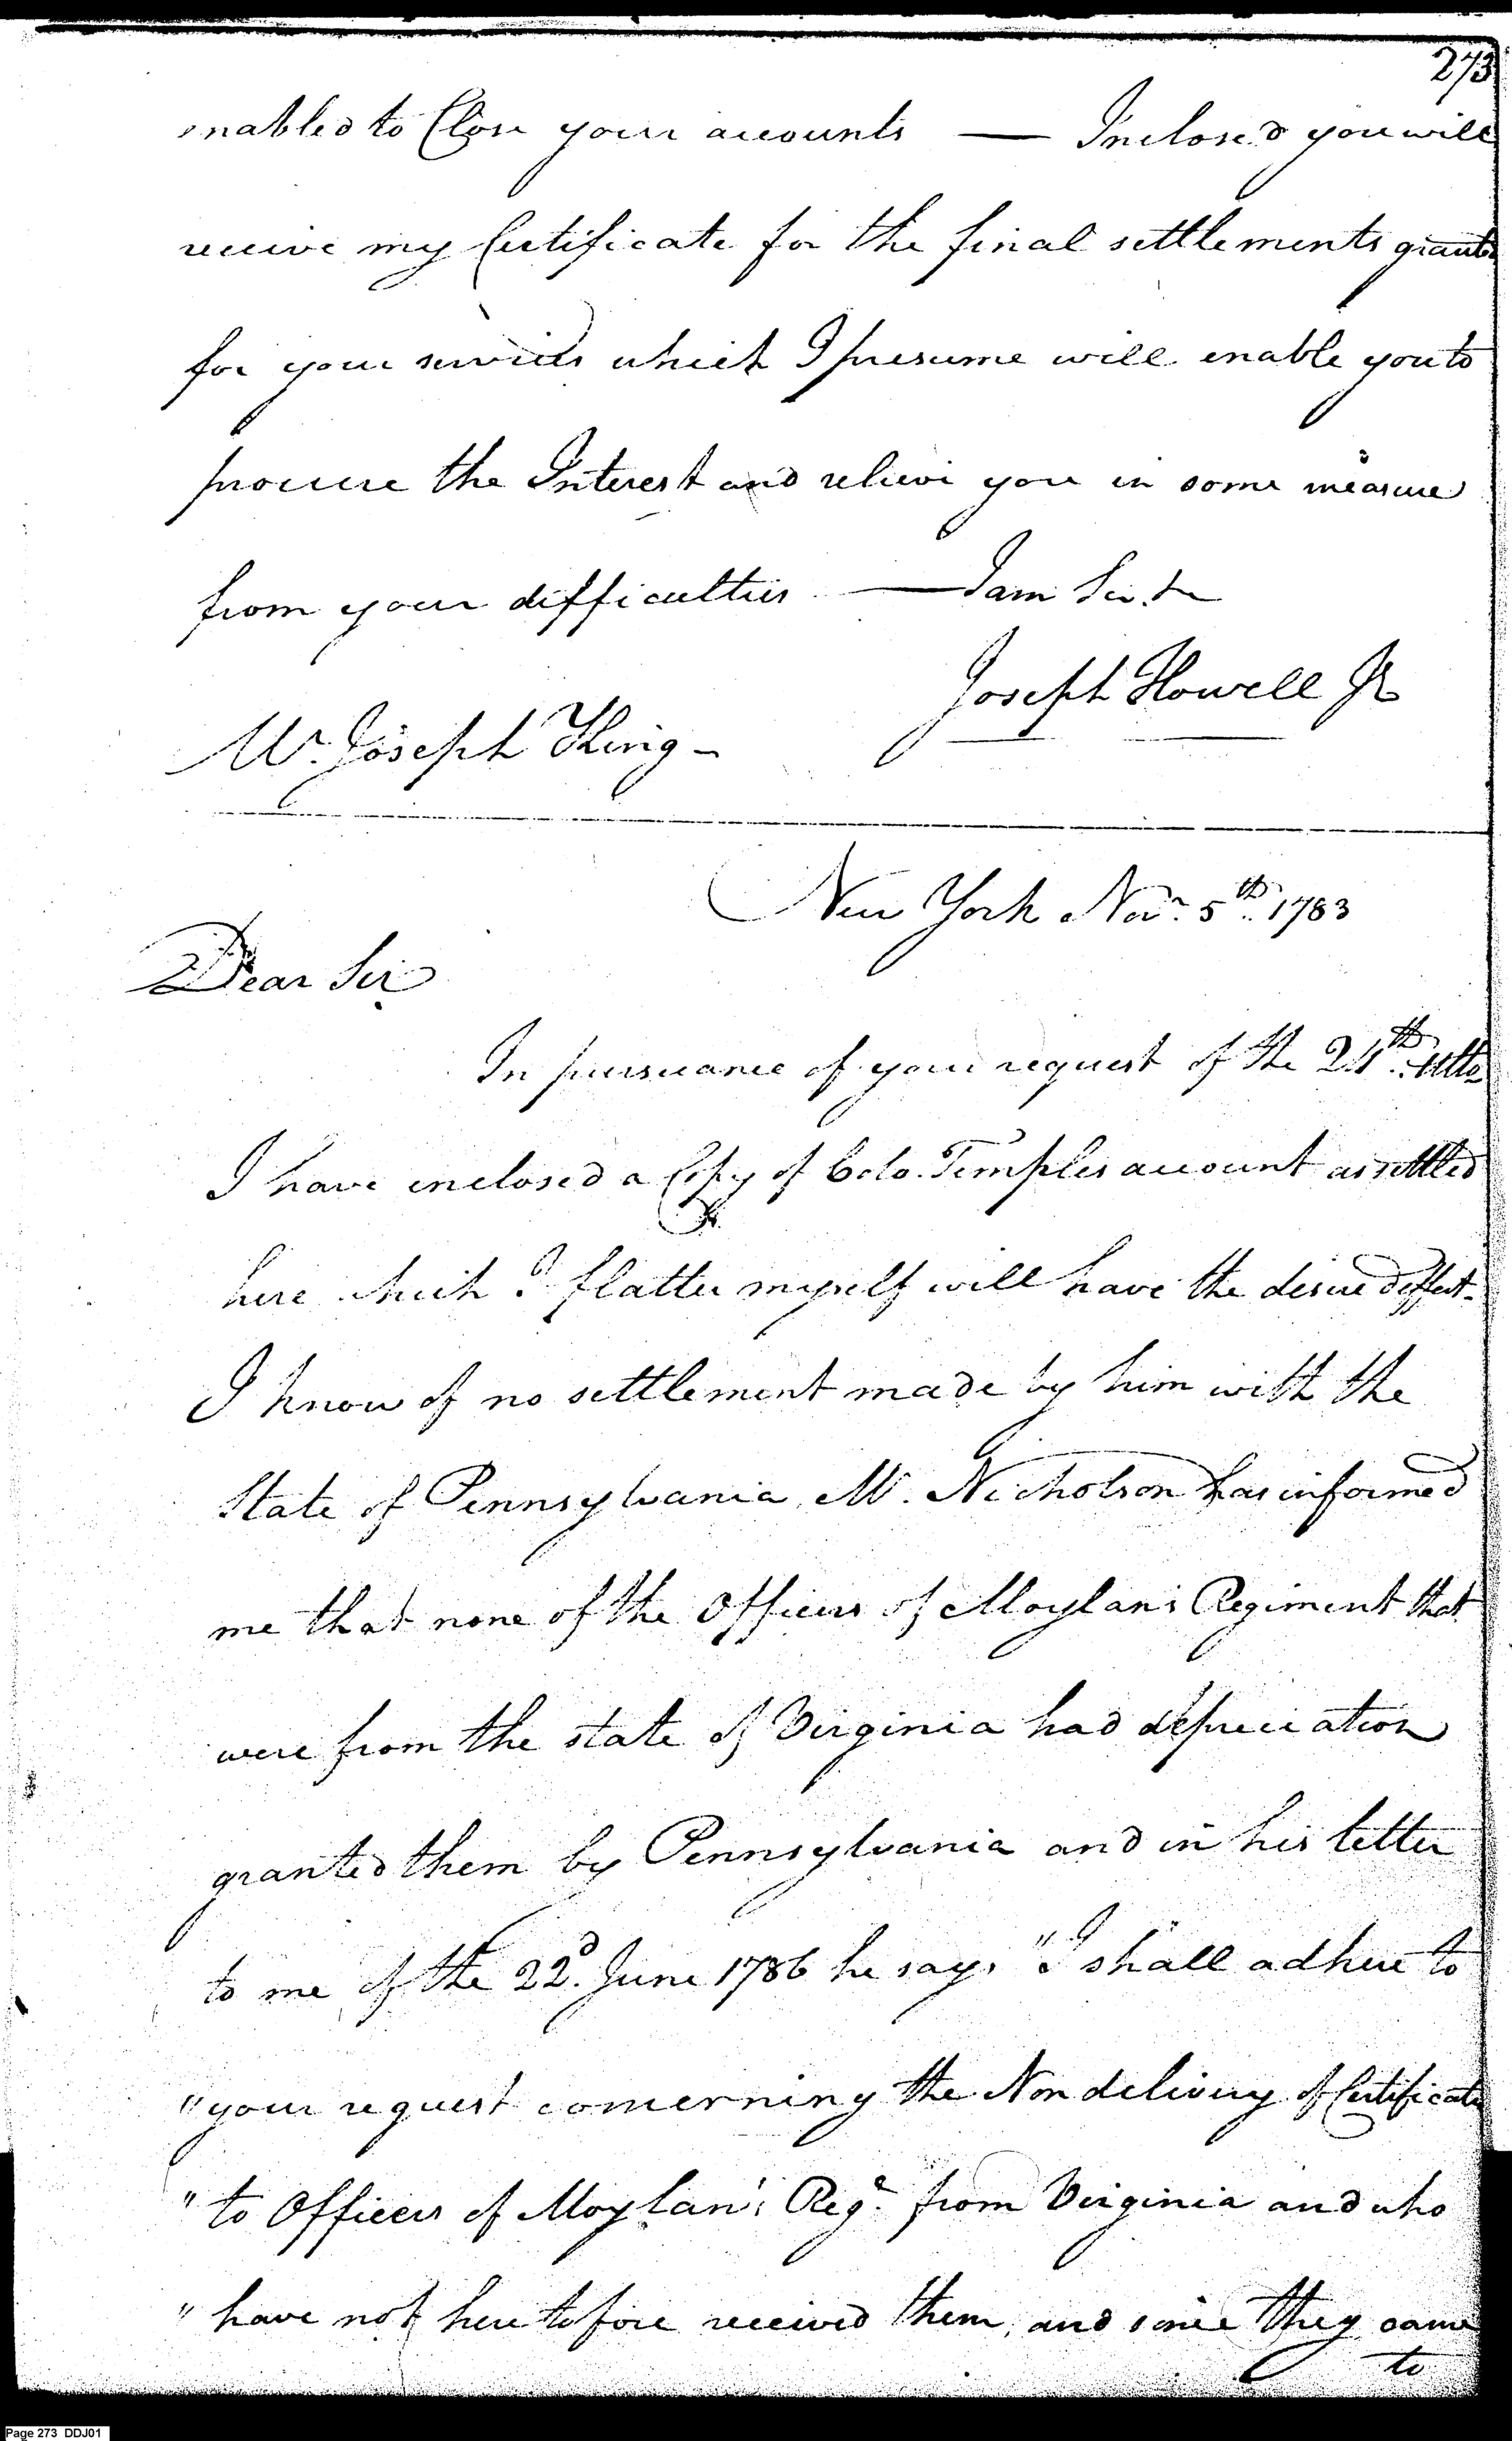 273
enabled to Close your accounts — Inclosed you will
receive my Certificate for the final settlements grante
for your services which I presume will enable you to
procure the Interest and relieve you in some measure
from your difficulties — I am Sir &c
Joseph Howell Jr
Mr. Joseph King -
New York Novr. 5th. 1783
Dear Sir
In pursuance of your request of the 24th. Ulto
I have inclosed a Copy of Colo. Temples account as settled
here which I flatter myself will have the desired effect.
I know of no settlement made by him with the
State of Pennsylvania, Mr. Nicholson has informed
me that none of the Officers of Moylan's Regiment that
were from the state of Virginia had depreciation
granted them by Pennsylvania and in his letter
to me of the 22d. June 1786 he says "I shall adhere to
"your request concerning the Non delivery of Certificate
"to Officers of Moylan's Regt. from Virginia and who
"have not heretofore received them, and since they came
to
Page 273 DDJ01